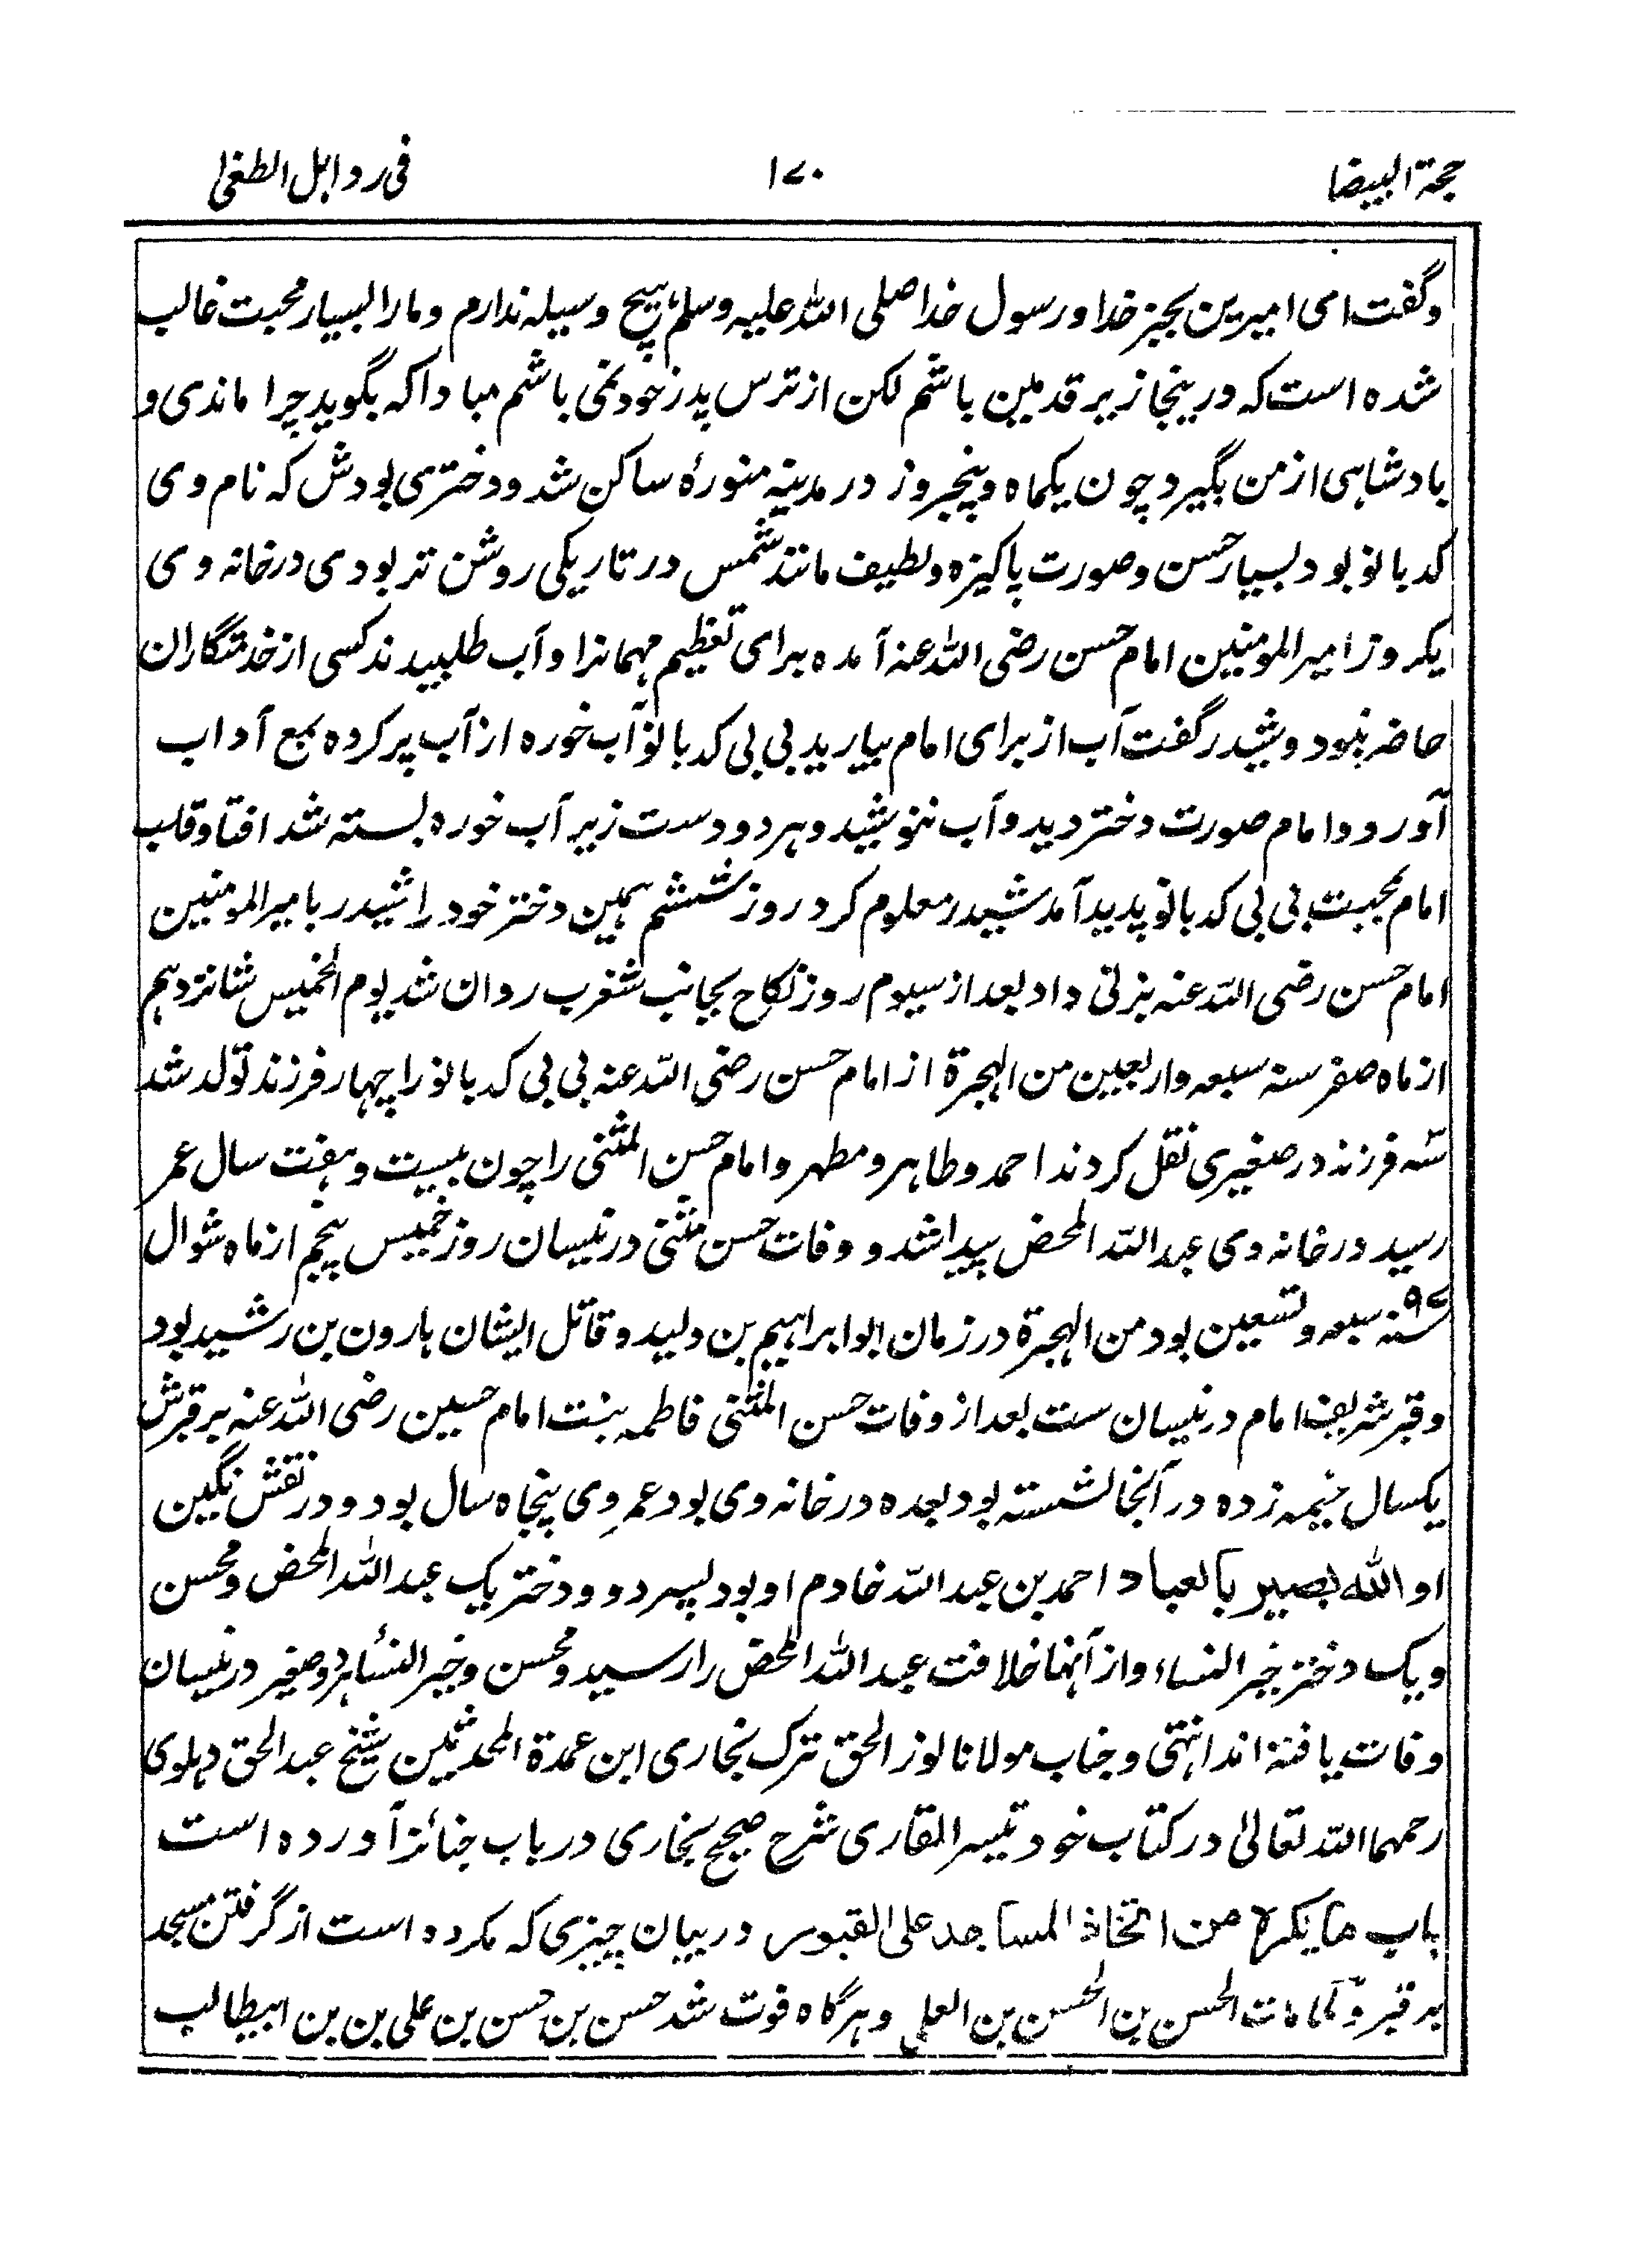 حجة البیضا ۱۷۰ فی رد اہل الطغیٰ
وگفت امی امیرین بجز خدا و رسول خدا صلی اللہ علیہ وسلم ہیچ وسیلہ ندارم و مارا بسیار محبت غالب
شدہ است کہ درینجا زیر قدمین باشم لکن از ترس پدر خود نمی باشم مبادا کہ بگوید چرا ماندی و
بادشاہی از من بگیرد چون یکماہ و پنجروز در مدینہ منورہٴ ساکن شد و دختری بودش کہ نام وی
کدبانو بود بسیار حسن و صورت پاکیزہ و لطیف مانند شمس در تاریکی روشن تر بودی در خانہ وی
یکروز امیر المومنین امام حسن رضی اللہ عنہ آمدہ برای تعظیم مہمانرا و آب طلبیدند کسی از خدمتگاران
حاضر نبود و شیدر گفت آب از برای امام بیارید بی بی کدبانو آب خورہ از آب پر کردہ بمع آداب
آورد و امام صورت دختر دید و آب ننوشید و ہر دو دست زیر آب خورہ بستہ شد افتاد و قلب
امام بمحبت بی بی کدبانو پدید آمد شیدر معلوم کرد روز ششم ہمین دختر خود را شیدر بامیر المومنین
امام حسن رضی اللہ عنہ بزنی داد بعد از سیوم روز نکاح بجانب شغرب روان شد یوم الخمیس شانزدہم
از ماہ صفر سنہ سبعہ و اربعین من الہجرۃ از امام حسن رضی اللہ عنہ بی بی کدبانو را چہار فرزند تولد شد
سہ فرزند در صغیری نقل کردند احمد و طاہر و مطہر و امام حسن المثنی را چون بیست و ہفت سال عمر
رسید در خانہ وی عبد اللہ المحض پیدا شد و وفات حسن مثنی در نیسان روز خمیس پنجم از ماہ شوال
۹۷ سنہ سبعہ و تسعین بود من الہجرۃ در زمان ابو ابراہیم بن ولید و قاتل ایشان ہارون بن رشید بود
و قبر شریف امام در نیسان ست بعد از وفات حسن المثنی فاطمہ بنت امام حسین رضی اللہ عنہ بر قبرش
یکسال خیمہ زدہ در آنجا نشستہ بود بعدہ در خانہ وی بود عمرِ وی پنجاہ سال بود و در نقش نگین
او اللہ بصیر بالعباد احمد بن عبد اللہ خادم او بود پسر دو و دختر یک عبد اللہ المحض و محسن
و یک دختر خیر النساء و از آنہا خلافت عبد اللہ المحض را رسید و محسن و خیر النسٴا ہر دو صغیر در نیسان
وفات یافتہ اند انتہی و جناب مولانا نور الحق ترک بخاری ابن عمدۃ المحدثین شیخ عبد الحق دہلوی
رحمہما اللہ تعالیٰ در کتاب خود تیسیر القاری شرح صحیح بخاری در باب جنائز آوردہ است
باب ما یکرہ من اتخاذ المساجد علی القبور در بیان چیزی کہ مکروہ است از گرفتن مسجد
بر قبر و لما مات الحسن بن الحسن بن العلی و ہرگاہ فوت شد حسن بن حسن بن علی بن بن ابیطالب